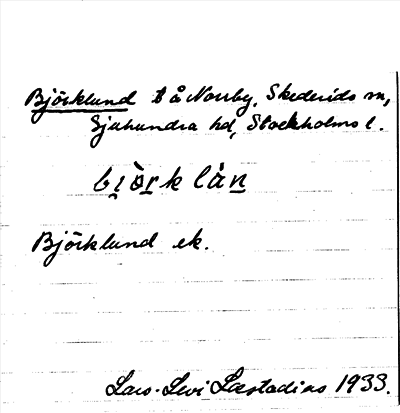 Björklund t å Norrby, Skederids sn,
Sjuhundra hd, Stockholms l.
bi̯òrk làn
Björklund ek.
Lars-Levi Læstadius 1933.